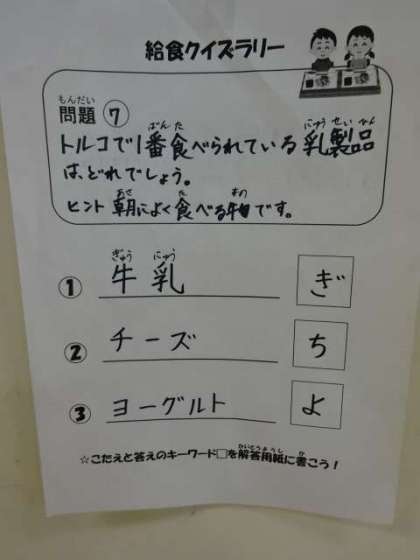 給食クイズラリー
もんだい
問題 ⑦
ばんた にゅうせいひん
トルコで1番食べられている乳製品
は、どれでしょう。
あさ た もの
ヒント 朝によく食べる物です。
ぎゅう にゅう
① 牛乳 ぎ
② チーズ ち
③ ヨーグルト よ
かいとうようし か
☆こたえと答えのキーワード□を解答用紙に書こう！